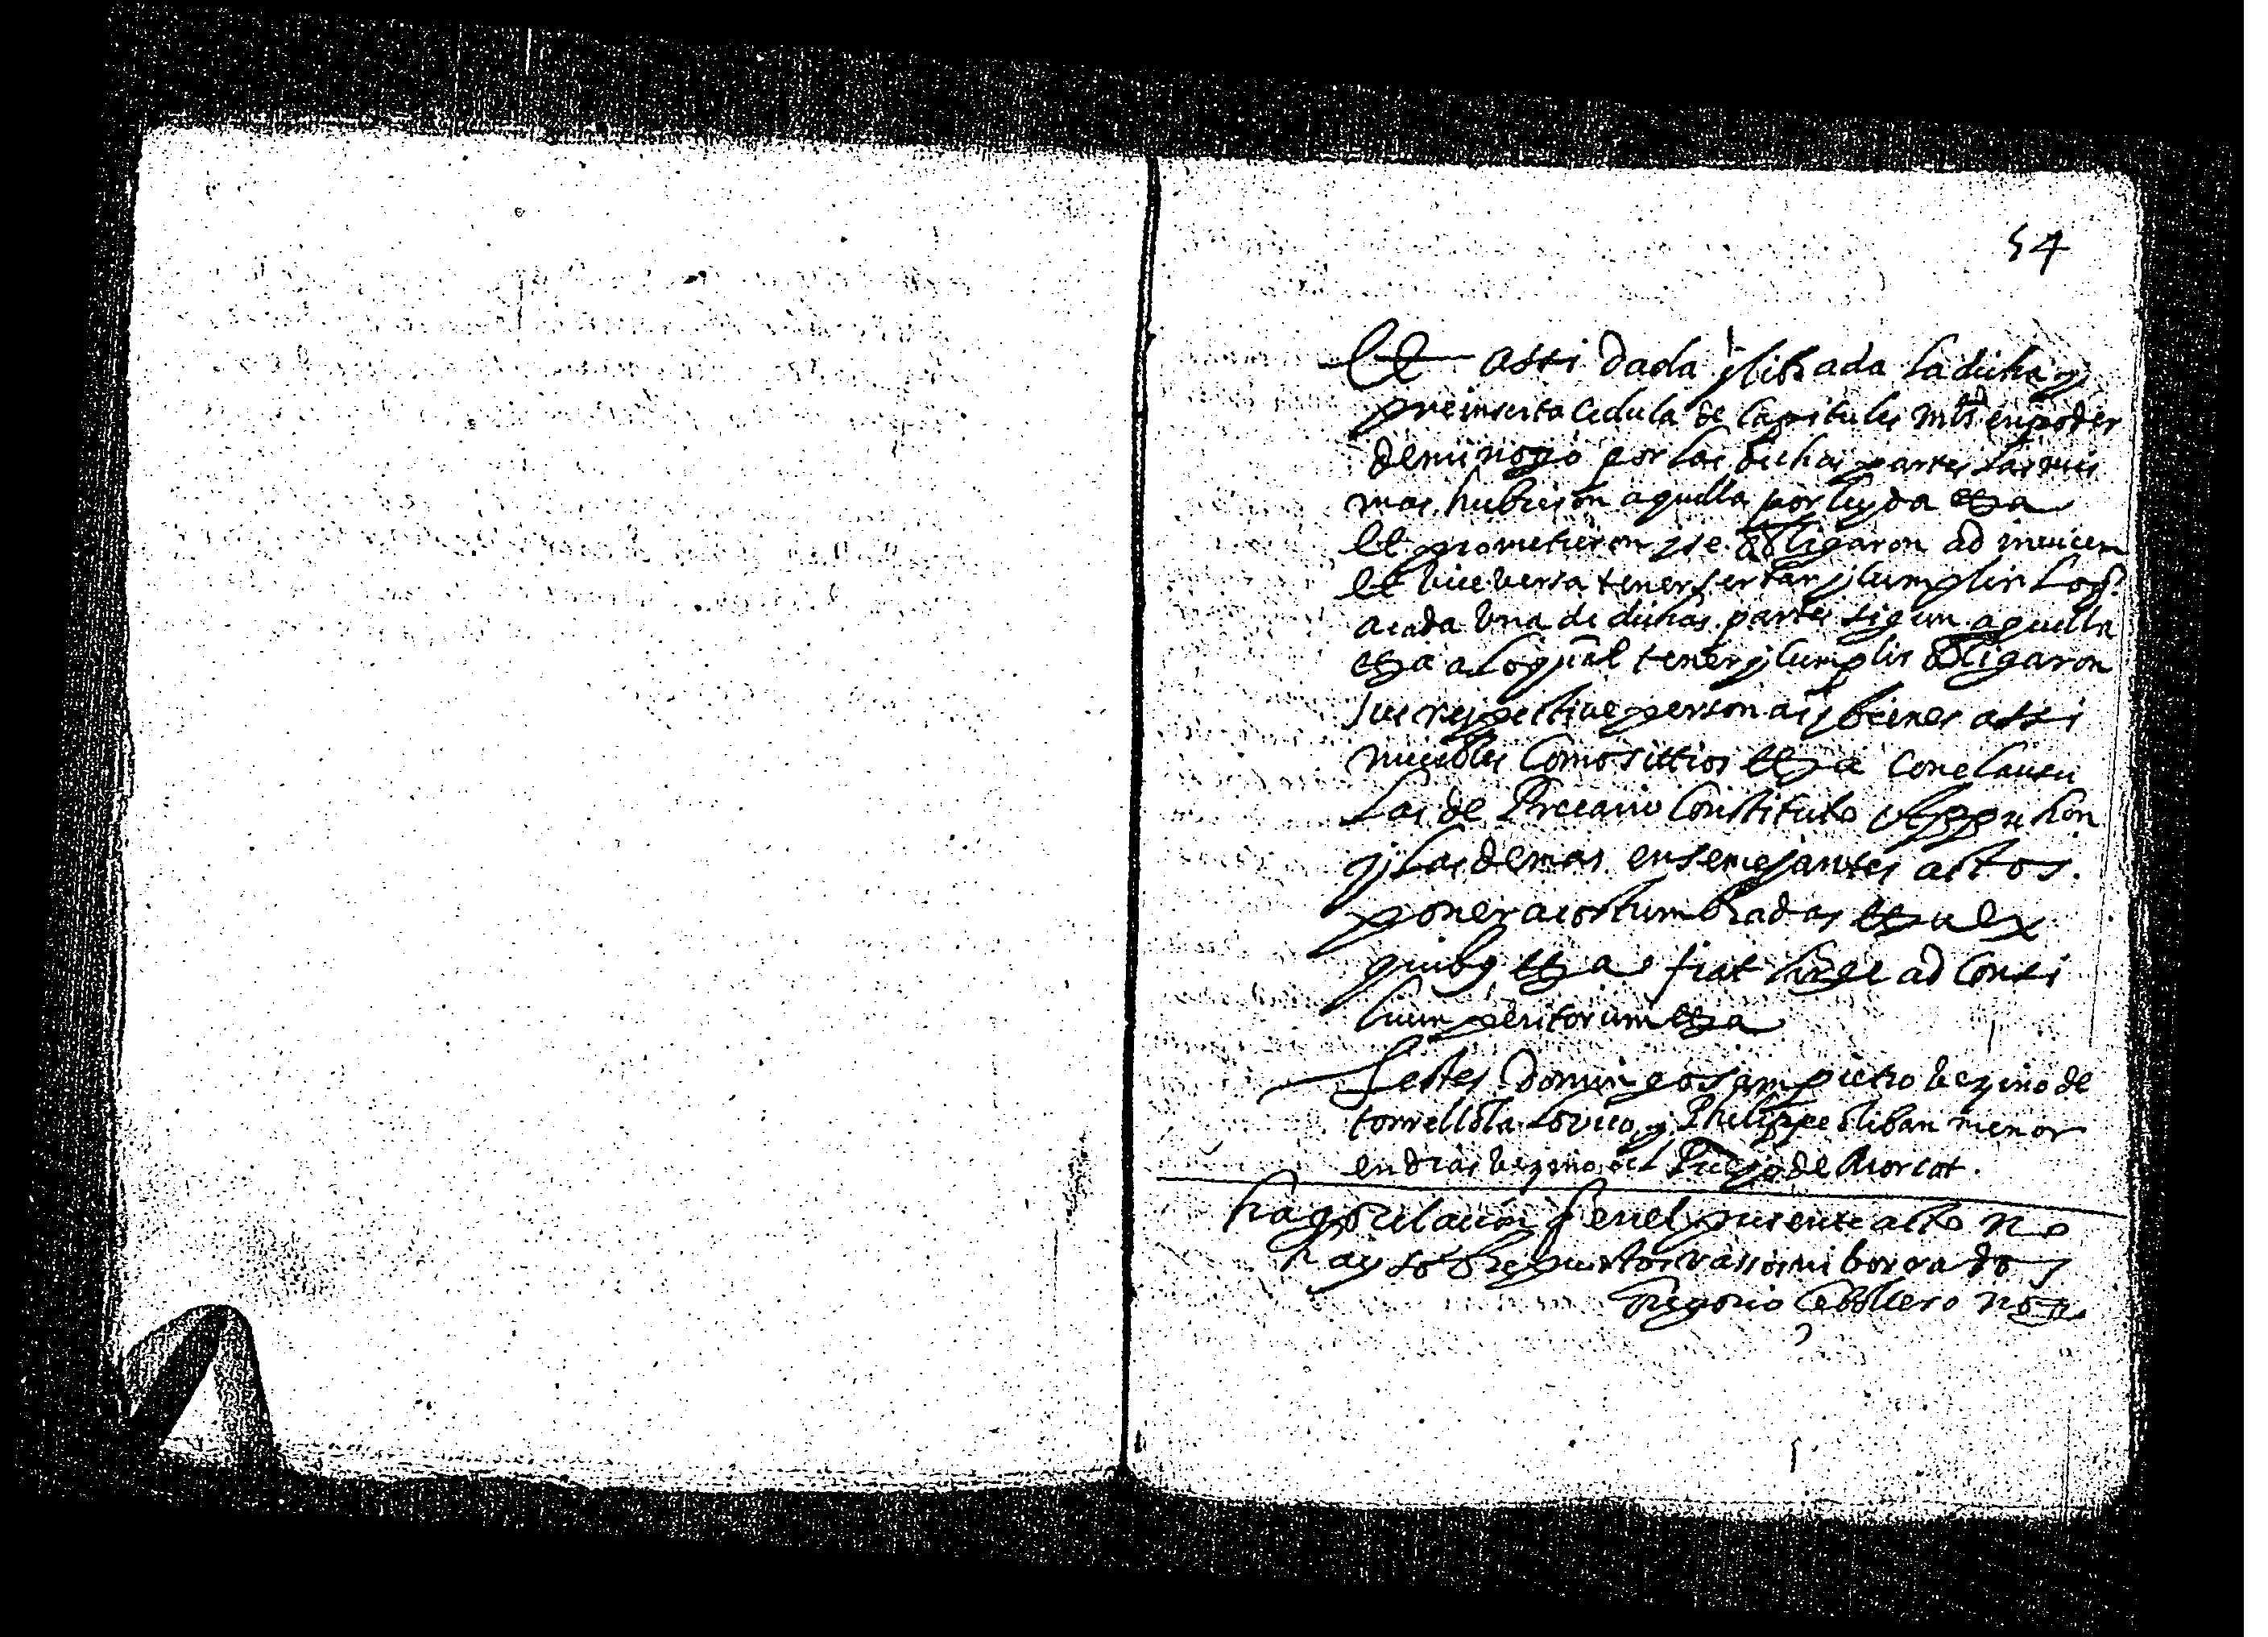 54
Et assi dada y librada la dicha y
preinserta cedula de Capitules mles en poder
de mi nogio por las dichas partes las mis
mas hubieron aquella por leyda etza
Et prometieron y se obligaron ad invicem
et vice versa tener serbar y cumplir lo q
a cada una de dichas partes sigun aquella
etza a lo qual tener y cumplir obligaron
sus respective personas y bienes assi
muebles como sittios etza con clausu
las de Precario Constituto Apprehen
y las demas en semejantes actos
poner acostumbradas etza ex
quibq etza fiat large ad consi
lium peritorum etza
Testes Domingo Sampietro vezino de
torrellola Lovico y Philippe oliban menor
en dias vezino del Pueyo de Morcat.
hago relacion q en el presente acto no
hay sobrepuestos rassos ni borrados
Gregorio Cebollero not